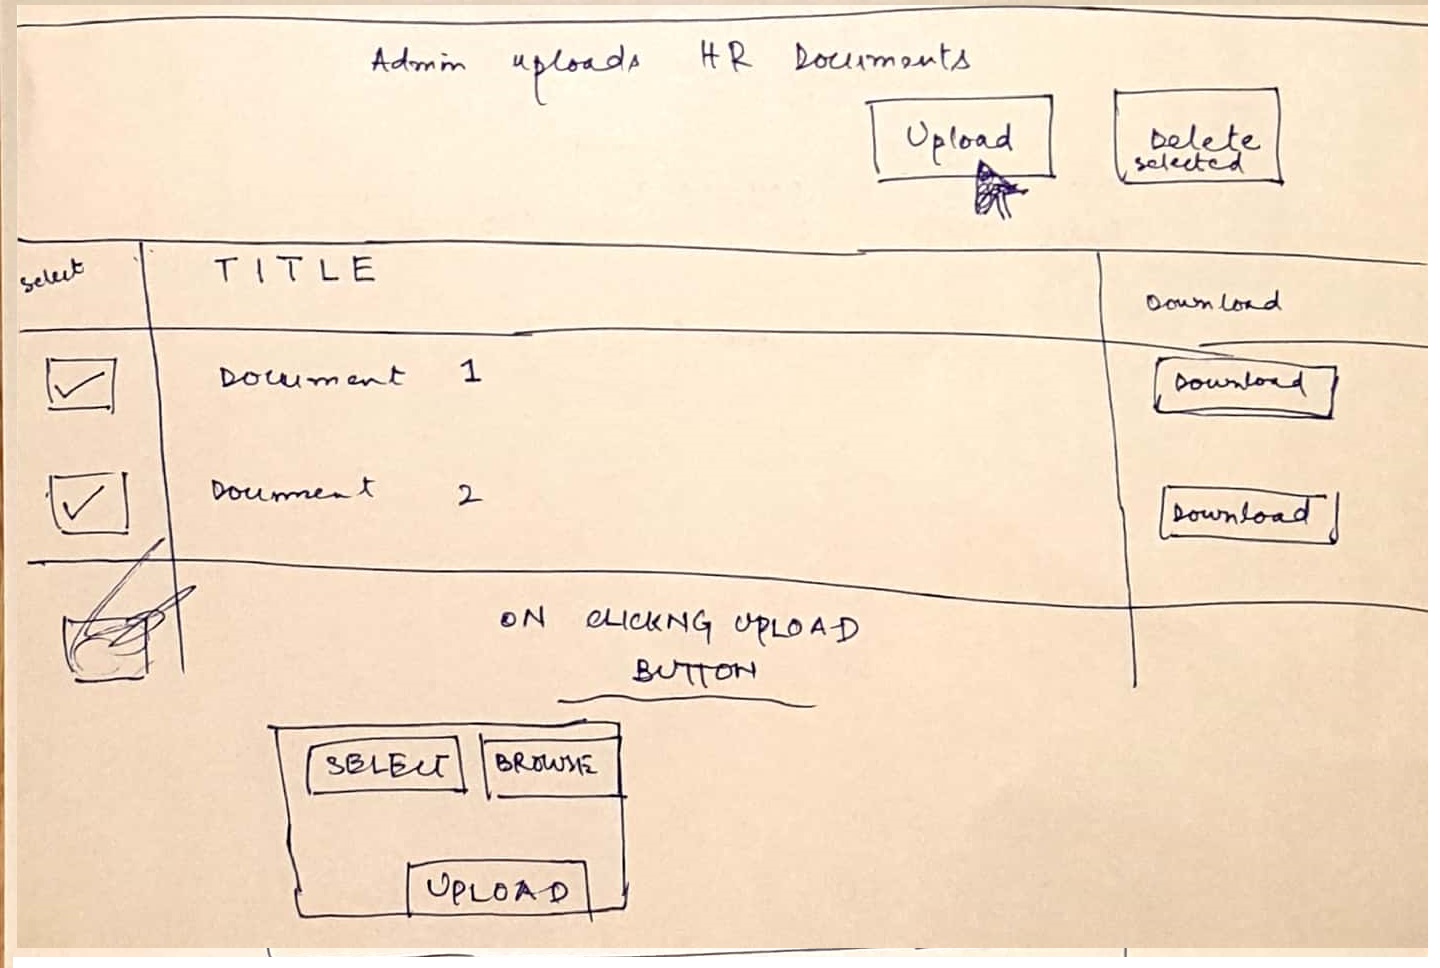 Admin uploads HR Documents
Upload
Delete
selected
select
TITLE
Download
Document 1
Download
Document 2
Download
ON CLICKNG UPLOAD
BUTTON
SELECT
BROWSE
UPLOAD